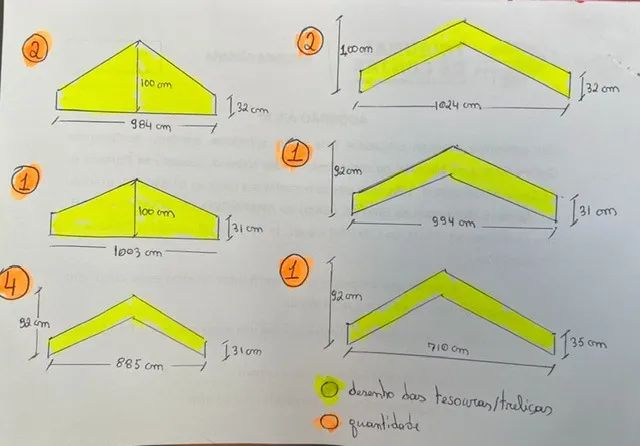 2
100 cm
32 cm
984 cm
2
100 cm
32 cm
1024 cm
1
100 cm
31 cm
1003 cm
1
92 cm
31 cm
994 cm
4
92 cm
31 cm
885 cm
1
92 cm
35 cm
710 cm
desenho das tesouras/treliças
quantidade